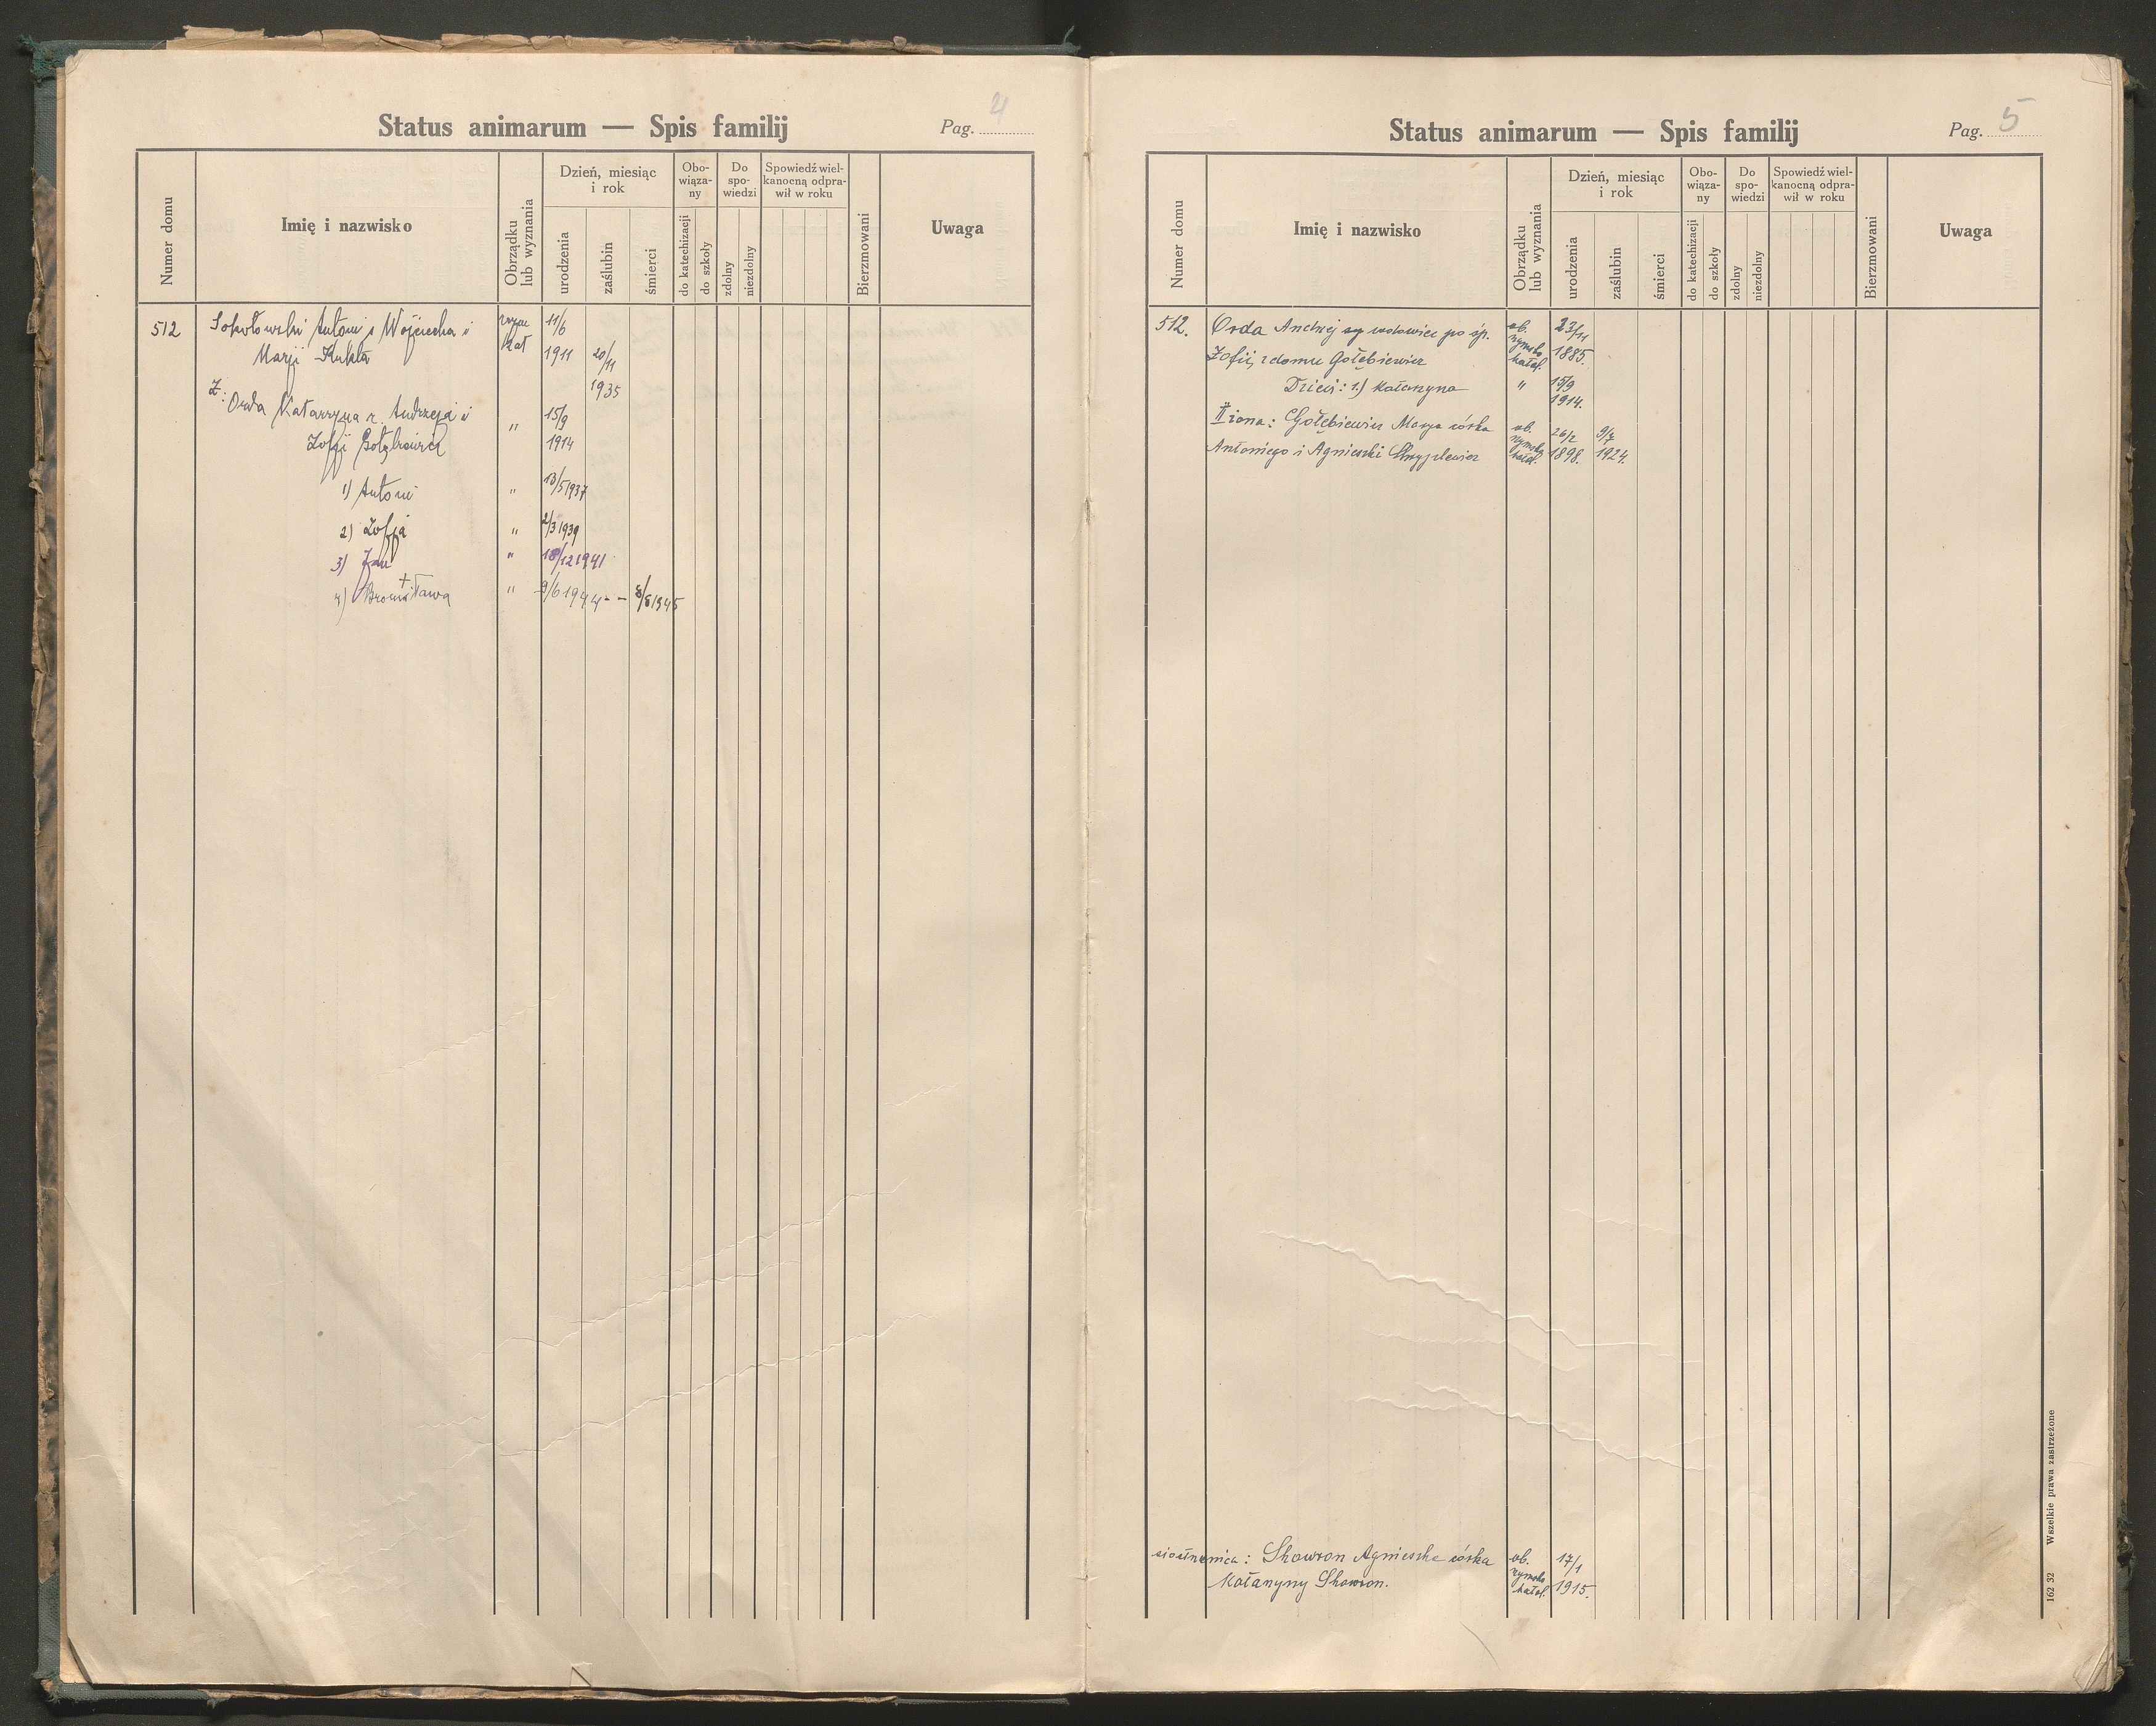 Status animarum — Spis familij
Pag. 4
Numer domu
Imię i nazwisko
Obrządku lub wyznania
Dzień, miesiąc i rok
urodzenia
zaślubin
śmierci
Obo-wiąza-ny
do katechizacji
do szkoły
Do spo-wiedzi
zdolny
niezdolny
Spowiedź wiel-kanocną odpra-wił w roku
Bierzmowani
Uwaga
512 Sokołowski Antoni s Wojciecha i 11/6
Marji Kukla kat 1911 20/11
Z: 1935
Orda Katarzyna c. Andrzeja i " 15/9
Zofji Gołębiewicz 1914
1) Antoni " 13/5 1937
2) Zofja " 2/3 1939
3) Jan " 18/12 1941
4) Bronisława + " 9/6 1944 - - 8/8 1945
Status animarum — Spis familij
Pag. 5
Numer domu
Imię i nazwisko
Obrządku lub wyznania
Dzień, miesiąc i rok
urodzenia
zaślubin
śmierci
Obo-wiąza-ny
do katechizacji
do szkoły
Do spo-wiedzi
zdolny
niezdolny
Spowiedź wiel-kanocną odpra-wił w roku
Bierzmowani
Uwaga
512. Orda Andrzej wdowiec po śp. ob. rzymsko 23/11
Zofii, z domu Gołębiewicz katol. 1885.
Dzieci: 1.) Katarzyna " 15/9
1914.
II żona: Gołębiewicz Marya córka ob. rzymsko 26/2 9/7
Antoniego i Agnieszki katol. 1898. 1924.
siostrzenica: Skowron Agnieszka córka ob. rzymsko 17/1
Katarzyny Skowron. katol. 1915.
162 32 Wszelkie prawa zastrzeżone